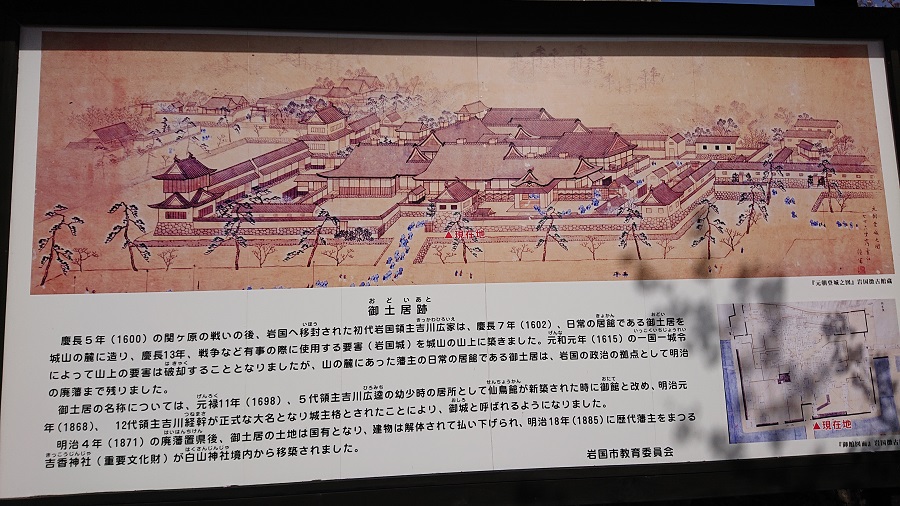 ▲現在地
『元朝登城之図』岩国徴古館蔵
おどいあと
御土居跡
慶長5年(1600)の関ヶ原の戦いの後、岩国へ移封された初代岩国領主吉川広家は、慶長7年(1602)、日常の居館である御土居を
城山の麓に造り、慶長13年、戦争など有事の際に使用する要害(岩国城)を城山の山上に築きました。元和元年(1615)の一国一城令
によって山上の要害は破却することとなりましたが、山の麓にあった藩主の日常の居館である御土居は、岩国の政治の拠点として明治
の廃藩まで残りました。
御土居の名称については、元禄11年(1698)、5代領主吉川広逵の幼少時の居所として仙鳥館が新築された時に御館と改め、明治元
年(1868)、12代領主吉川経幹が正式な大名となり城主格とされたことにより、御城と呼ばれるようになりました。
明治4年(1871)の廃藩置県後、御土居の土地は国有となり、建物は解体されて払い下げられ、明治18年(1885)に歴代藩主をまつる
吉香神社(重要文化財)が白山神社境内から移築されました。
岩国市教育委員会
▲現在地